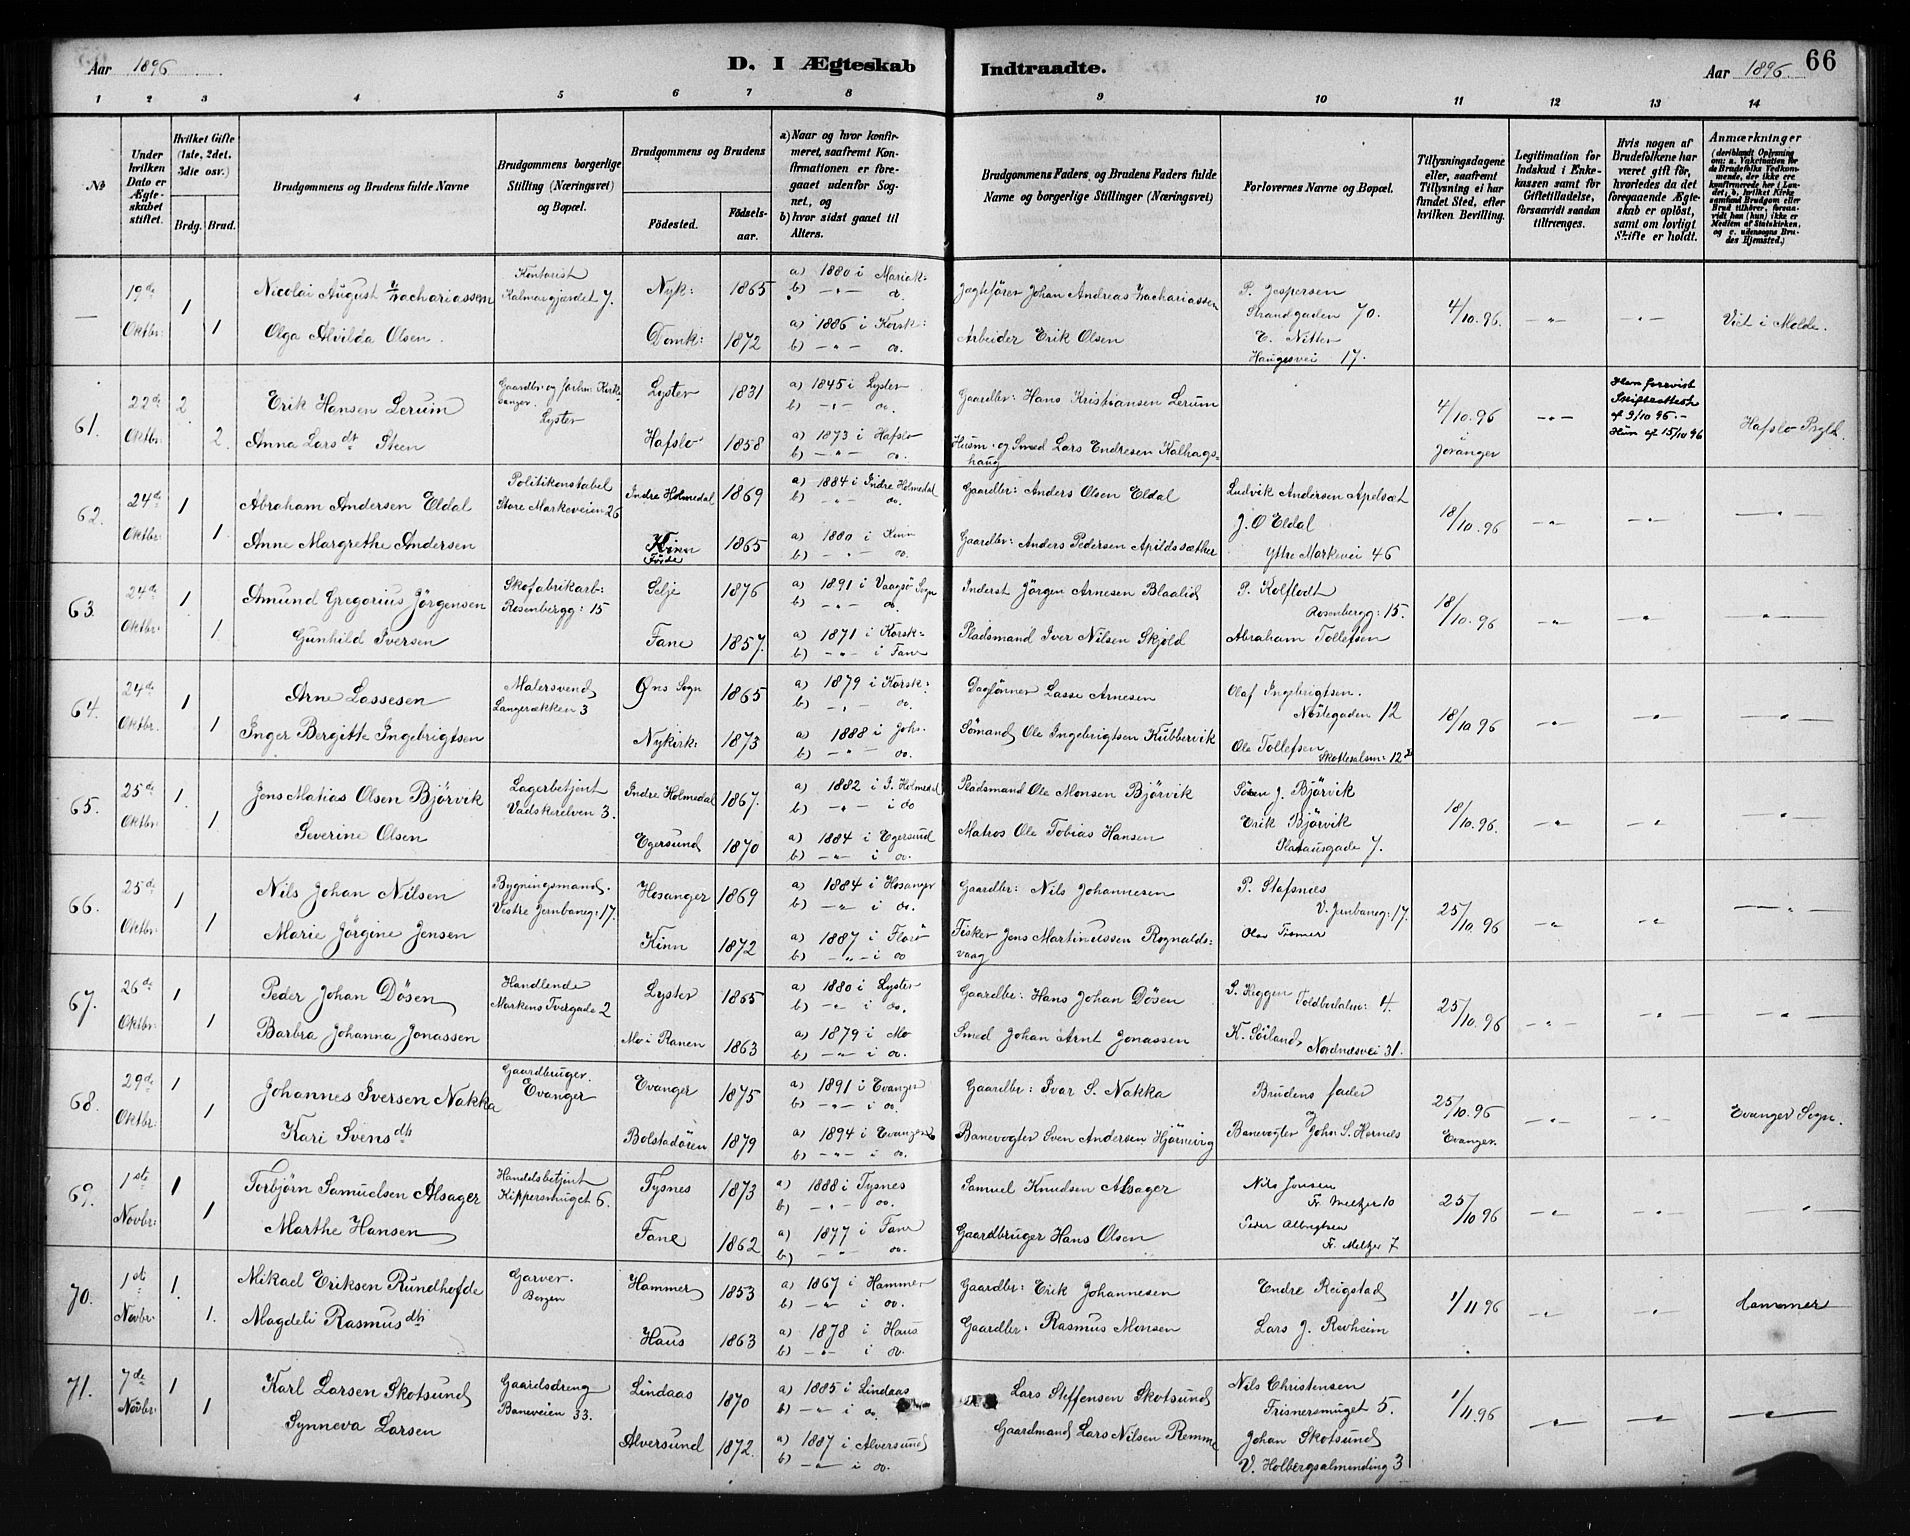 Aar 1896
D. I Ægteskab Indtraadte.
Aar 1896.
66
1 2 3 4 5 6 7 8 9 10 11 12 13 14
№
Under hvilken Dato er Ægteskabet stiftet.
Hvilket Gifte (1ste, 2det, 3die osv.)
Brdg. Brud.
Brudgommens og Brudens fulde Navne
Brudgommens borgerlige Stilling (Næringsvei) og Bopæl.
Brudgommens og Brudens
Fødested. Fødselsaar.
a) Naar og hvor konfirmeret, saafremt Konfirmationen er foregaaet udenfor Sognet, og
b) hvor sidst gaaet til Alters.
Brudgommens Faders, og Brudens Faders fulde Navne og borgerlige Stillinger (Næringsvei)
Forlovernes Navne og Bopæl.
Tillysningsdagene eller, saafremt Tillysning ei har fundet Sted, efter hvilken Bevilling.
Legitimation for Indskud i Enkekassen samt for Giftetilladelse, forsaavidt saadan tiltrænges.
Hvis nogen af Brudefolkene har været gift før, hvorledes da det foregaaende Ægteskab er opløst, samt om lovligt Skifte er holdt.
Anmærkninger (deriblandt Oplysning om: a. Vakcination for de Brudefolks Vedkommende, der ikke er konfirmerede her i Landet, b. hvilket Kirkesamfund Brudgom eller Brud tilhører, forsaavidt han (hun) ikke er Medlem af Statskirken, og c. udensogns Brudes Hjemsted.)
— 19de Oktbr: 1 Nicolai August Zachariassen Kontorist Kalmargjerdet 7. Nyk: 1865 a) 1880 i Mariak: b) —"— do. Jægtefører Johan Andreas Zachariassen P. Jespersen Strandgaden 70. 4/10.96. —"— —"— Viet i Molde.
1 Olga Alvilda Olsen. Domk: 1872 a) 1886 i Korsk: b) —"— do. Arbeider Erik Olsen E. Nitter Haugesvei 17.
61. 22de Oktbr: 2 Erik Hansen Lerum Gaardbr. og forhn: Kirkesanger. Lyster Lyster 1831 a) 1845 i Lyster b) —"— do. Gaardbr: Hans Kristiansen Lerum 4/10.96 Joranger —"— Ham forevist Skifteattest af 9/10 96.— Hun af 15/10 96 Hafslo Prgld.
2. Anna Larsdt Steen Hafslo 1858 a) 1873 i Hafslo b) —"— do. Husm. og Smed Lars Endresen Kalhagshaug
62. 24de Oktbr: 1 Abraham Andersen Eldal Politikonstabel Store Markeveien 26 Indre Holmedal 1869 a) 1884 i Indre Holmedal b) —"— do. Gaardbr: Anders Olsen Eldal Ludvik Andersen Apelsæt 18/10.96 —"— —"— —"—
1 Anne Margrethe Andersen Kinn Førde 1865 a) 1880 i Kinn b) —"— do. Gaardbr: Anders Pedersen Apildssæther J. O Eldal Ytre Markevei 46
63. 24de Oktbr: 1 Amund Gregorius Jörgensen Skofabrikarb: Rosenbergg: 15 Selje 1876 a) 1891 i Vaagsö Sogn b) —"— do. Inderst Jörgen Arnesen Blaalid P. Kolflodt Rosenbergg: 15. 18/10.96 —"— —"— —"—
1 Gunhild Iversen Fane 1857. a) 1871 i Korsk: b) —"— i Fane Pladsmand Iver Nilsen Skjold Abraham Tollefsen
64. 24de Oktbr: 1 Arne Lassesen Malersvend Langerækken 3 Øns Sogn 1865 a) 1879 i Korsk: b) —"— do. Daglönner Lasse Arnesen Olaf Ingebrigtsen. Nöstegaden 12 18/10.96 —"— —"— —"—
1 Inger Bergitte Ingebrigtsen Nykirk: 1873 a) 1888 i Johs. b) —"— do. Sömand Ole Ingebrigtsen Kubbervik Ole Tollefsen Skottesalm: 12
65. 25de Oktbr: 1. Jens Matias Olsen Björvik Lagerbetjent Vadskerelven 3. Indre Holmedal 1867. a) 1882 i I. Holmedal b) —"— i do Pladsmand Ole Monsen Björvik Sören J. Björvik 18/10.96. —"— —"— —"—
1 Severine Olsen Egersund 1870 a) 1884 i Egersund b) —"— i do. Matros Ole Tobias Hansen Erik Björvik Platausgade 7.
66. 25de Oktbr: 1 Nils Johan Nilsen Bygningsmand. Vestre Jernbaneg: 17. Hosanger 1869 a) 1884 i Hosanger b) —"— i do. Gaardbr: Nils Johannesen P. Stafsnæs V. Jernbaneg: 17. 25/10.96 —"— —"— —"—
1 Marie Jörgine Jensen Kinn 1872 a) 1887 i Florö b) —"— i do Fisker Jens Martinussen Rognaldsvaag
67. 26de Oktbr: 1 Peder Johan Dösen Handlende Markens Tvergade 2 Lyster 1865 a) 1880 i Lyster b) —"— i do. Gaardbr: Hans Johan Dösen S. Heggen Toldbodalm: 4. 25/10.96 —"— —"— —"—
1 Barbra Johanna Jonassen Mo i Ranen 1863 a) 1879 i Mo b) —"— i do. Smed Johan Arnt Jonassen K. Söiland Nordnæsvei 31.
68. 29de Oktbr: 1 Johannes Iversen Nakka Gaardbruger. Evanger Evanger 1875 a) 1891 i Evanger b) —"— i do. Gaardbr: Ivar S. Nakka Brudens fader og 25/10.96 Evanger. —"— —"— Evanger Sogn.
1 Kari Svensdt Bolstadören 1879 a) 1894 i Evanger b) —"— i do. Banevogter Sven Andersen Hjörnevig Banevogter John S. Hernes
69. 1ste Novbr: 1 Torbjörn Samuelsen Alsager Handelsbetjent Kippersmuget 6. Tysnes 1873 a) 1888 i Tysnes b) —"— do. Samuel Knudsen Alsager Nils Jensen Fr. Meltzer 10 25/10.96 —"— —"— —"—
1 Marthe Hansen Fane 1862 a) 1877 i Fane b) —"— do. Gaardbruger Hans Olsen Peder Albrigtsen Fr. Meltzer 7
70. 1ste Novbr: 1. Mikael Eriksen Rundhofde Garver. Bergen Hammer 1853 a) 1867 i Hammer b) —"— i do. Gaardbr: Erik Johannesen Endre Reigstad 1/11 96 —"— —"— Hammer
1. Magdeli Rasmusdt Haus 1863 a) 1878 i Haus b) —"— i do. Gaardbr: Rasmus Monsen Lars J. Revheim
71. 7de Novbr: 1 Karl Larsen Skotsund Gaardsdreng Baneveien 33. Lindaas 1870 a) 1885 i Lindaas b) —"— i do. Lars Steffensen Skotsund Nils Christensen Frisnersmuget 5. 1/11.96 —"— —"— —"—
1 Synneva Larsen Alversund 1872. a) 1887 i Alversund b) —"— i do. Gaardmand Lars Nilsen Remme Johan Skotsund V. Holbergsalmending 3